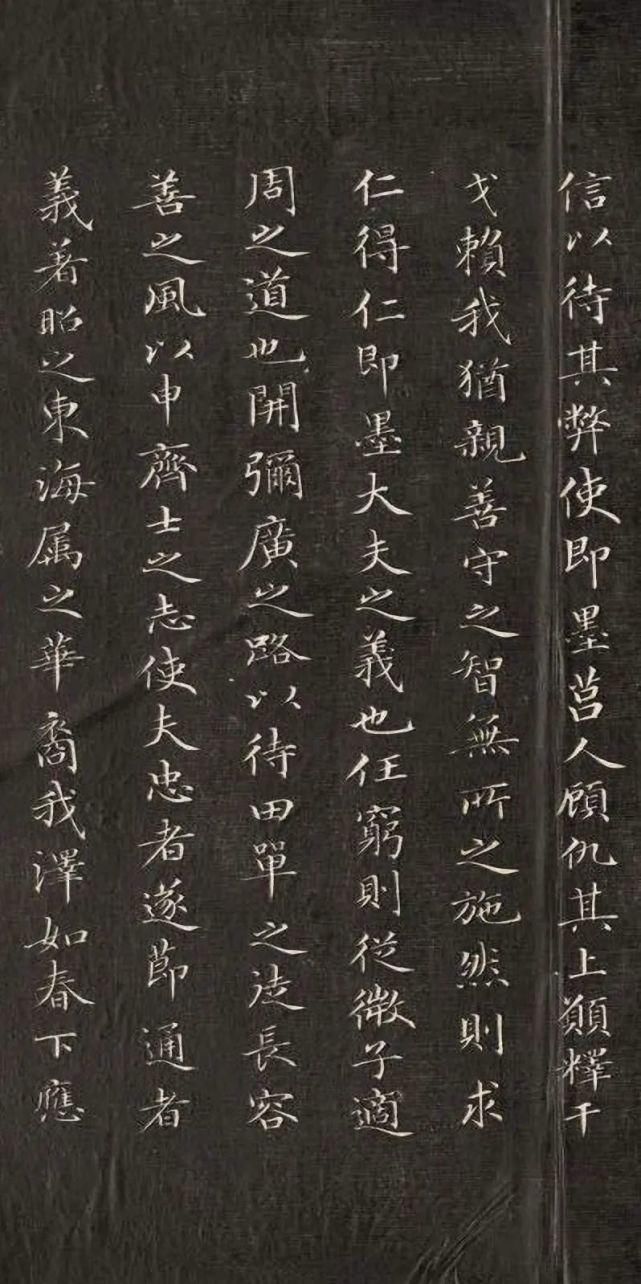 信以待其弊使即墨莒人顧仇其上願釋干
戈賴我猶親善守之智無所之施然則求
仁得仁即墨大夫之義也任窮則從微子適
周之道也開彌廣之路以待田單之徒長容
善之風以申齊士之志使夫忠者遂節通者
義著昭之東海属之華裔我澤如春下應